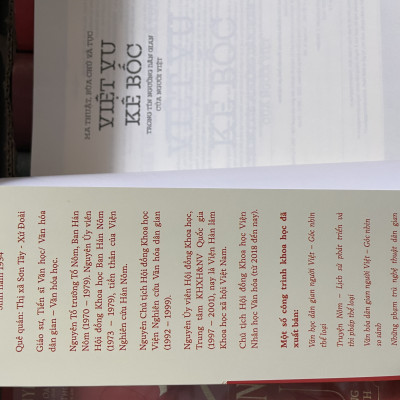 MA THUẬT, BÙA CHÚ VÀ TỤC
VIỆT VU
KÊ BỐC
TRONG TÍN NGƯỠNG DÂN GIAN
CỦA NGƯỜI VIỆT
Sinh năm 1954
Quê quán: Thị xã Sơn Tây - Xứ Đoài
Giáo sư, Tiến sĩ Văn học/ Văn hóa
dân gian – Văn hóa học.
Nguyên Tổ trưởng Tổ Nôm, Ban Hán
Nôm (1970 – 1979); Nguyên Ủy viên
Hội đồng Khoa học Ban Hán Nôm
(1973 – 1979), tiền thân của Viện
Nghiên cứu Hán Nôm.
Nguyên Chủ tịch Hội đồng Khoa học
Viện Nghiên cứu Văn hóa dân gian
(1992 – 1999).
Nguyên Ủy viên Hội đồng Khoa học,
Trung tâm KHXH&NV Quốc gia
(1997 – 2002), nay là Viện Hàn lâm
Khoa học xã hội Việt Nam.
Chủ tịch Hội đồng Khoa học Viện
Nhân học Văn hóa (từ 2018 đến nay).
Một số công trình khoa học đã
xuất bản:
Văn học dân gian người Việt – Góc nhìn
thể loại
Truyện Nôm – Lịch sử phát triển và
thi pháp thể loại
Văn hóa dân gian người Việt – Góc nhìn
so sánh
Những phạm trù nghệ thuật dân gian